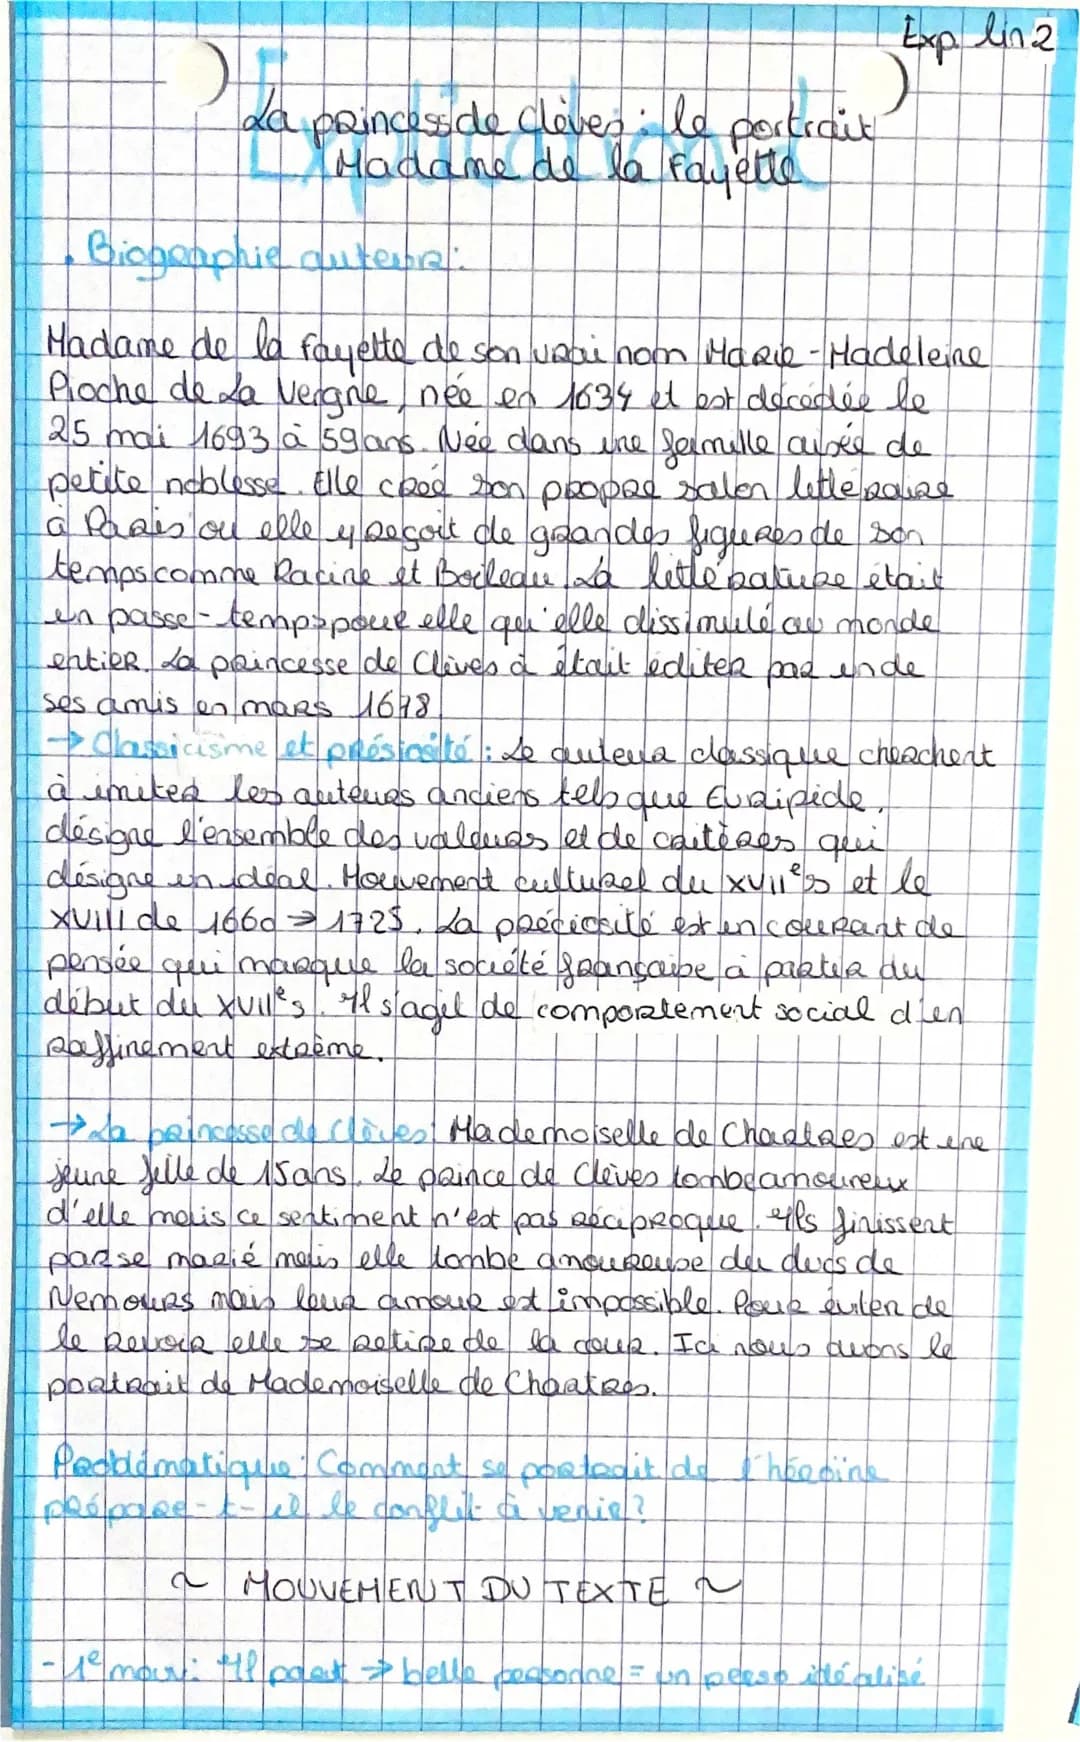 Exp. lin 2
La princesse de Clèves : le portrait
Madame de la Fayette
. Biographie auteur :
Madame de la fayette de son vrai nom Marie-Madeleine
Pioche de La Vergne, née en 1634 et est décédée le
25 mai 1693 à 59 ans. Née dans une famille aisée de
petite noblesse. Elle créé son propre salon littéraire
à Paris ou elle y reçoit de grandes figures de son
temps comme Racine et Boileau. La littérature était
un passe-temps pour elle qu'elle dissimulé au monde
entier. La princesse de Clèves à était éditer par un de
ses amis en mars 1678
→ Classicisme et présiosité : Le auteur classique cherchent
à imiter les auteurs anciens tels que Euripide,
désigne l'ensemble des valeurs et de critères qui
désigne un idéal. Mouvement culturel du XVIIe s et le
XVIII de 1660 → 1725. La préciosité est un courant de
pensée qui marque la société française à partir du
début du XVIIe s. Il s'agit de comportement social d'un
raffinement extrème.
→ La princesse de Clèves : Mademoiselle de Chartres est une
jeune fille de 15 ans. Le prince de Clèves tombe amoureux
d'elle mais ce sentiment n'est pas réciproque. Ils finissent
par se marié mais elle tombe amoureuse du ducs de
Nemours mais leur amour est impossible. Pour éviter de
le revoir elle se retire de la cour. Ici nous avons le
portrait de Mademoiselle de Chartres.
Problématique : Comment se portrait de l'héroïne
prépare-t-il le conflit à venir ?
~ MOUVEMENT DU TEXTE ~
- 1e mouv : Il part → belle personne = un perso idéalisé